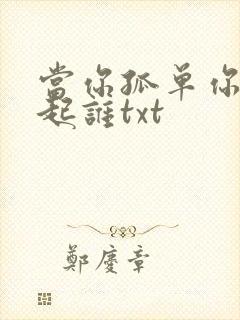 當你孤单你
起誰txt
鄭慶章